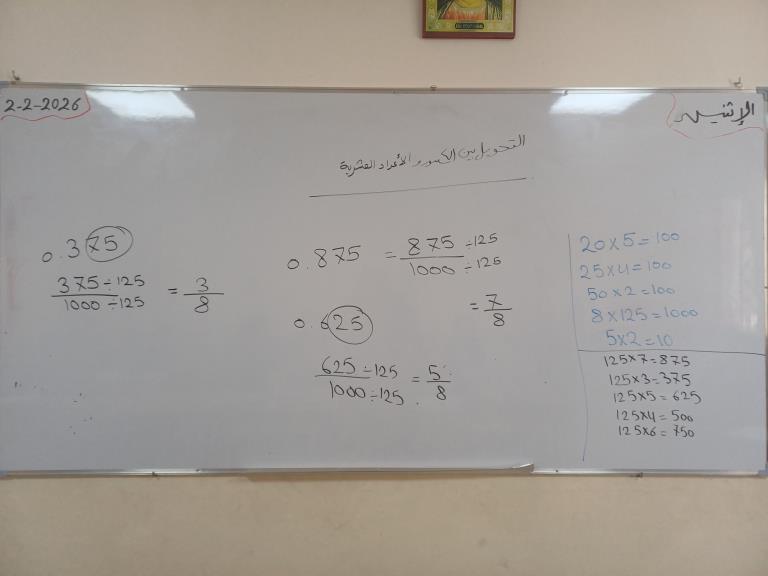 2-2-2026
الإثنين
التحويل بين الكسور والأعداد العشرية
0.375
375÷125 / 1000÷125 = 3/8
0.875 = 875÷125 / 1000÷125
= 7/8
0.625
625÷125 / 1000÷125 = 5/8
20×5=100
25×4=100
50×2=100
8×125=1000
5×2=10
125×7=875
125×3=375
125×5=625
125×4=500
125×6=750